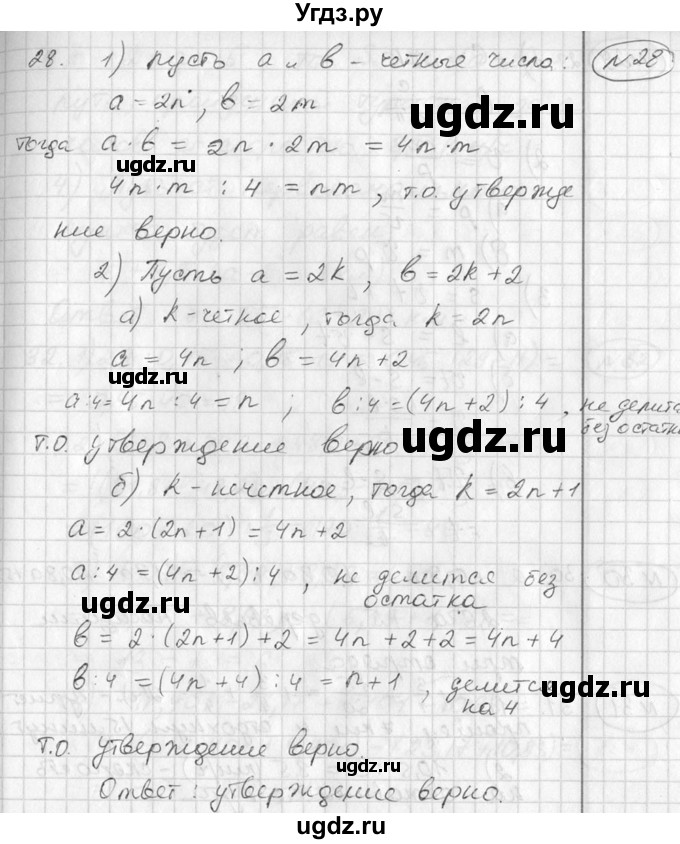 Угдз.ру
28. 1) пусть a и b - четные числа: №28
a = 2n, b = 2m
ugdz.ru
Тогда a · b = 2n · 2m = 4n · m
ugdz.ru
4n · m : 4 = nm, т.о. утвержде
ние верно.
2) Пусть a = 2k, b = 2k + 2
а) k - четное, тогда k = 2n
a = 4n ; b = 4n + 2
ugdz.ru
a:4 = 4n : 4 = n ; b:4 = (4n + 2) : 4, не делится
без остатка
ugdz.ru
т.о. утверждение верно
б) k - нечетное, тогда k = 2n + 1
a = 2 · (2n + 1) = 4n + 2
a : 4 = (4n + 2) : 4, не делится без
остатка
ugdz.ru
b = 2 · (2n + 1) + 2 = 4n + 2 + 2 = 4n + 4
b : 4 = (4n + 4) : 4 = n + 1, делится
на 4
ugdz.ru
т.о. утверждение верно.
ugdz.ru
Ответ: утверждение верно.
ugdz.ru